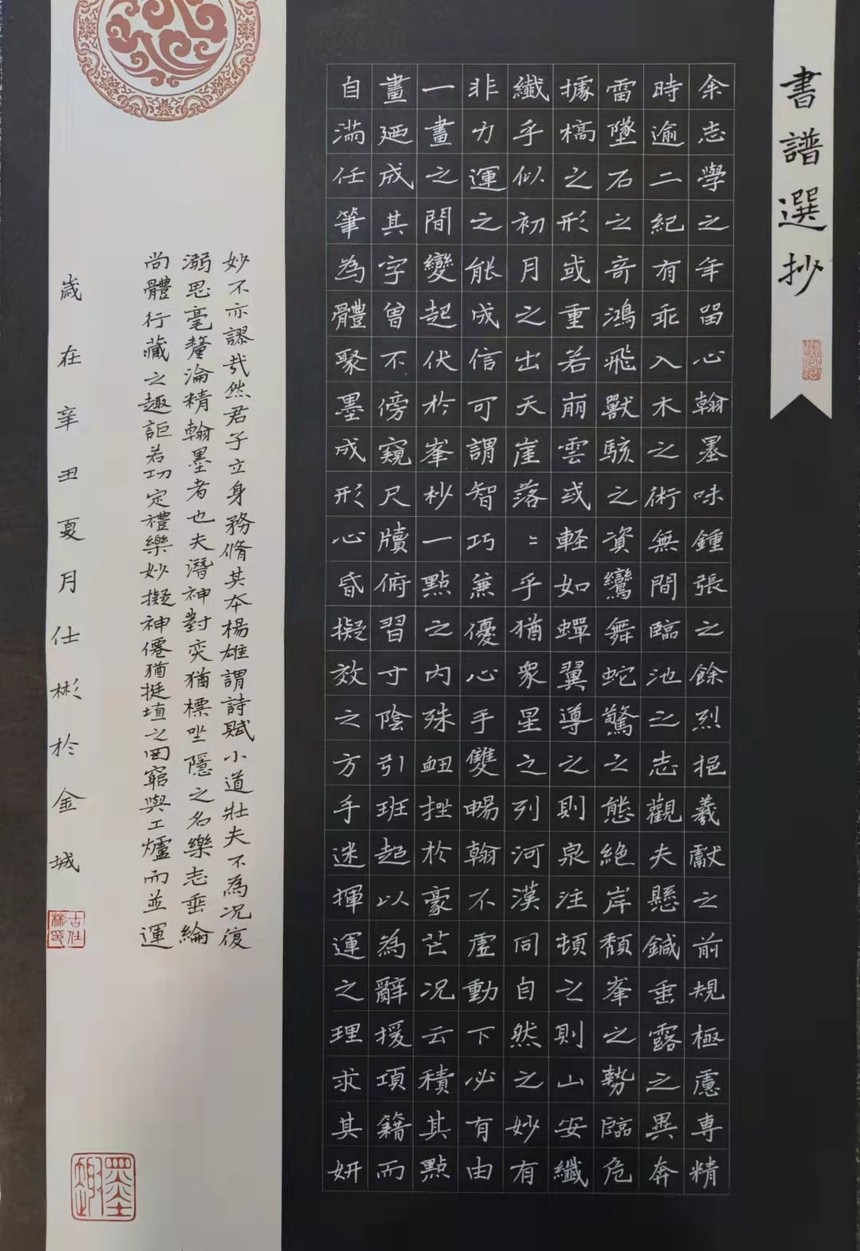 書譜選抄
余志學之年留心翰墨味鍾張之餘烈挹羲獻之前規極慮專精
時逾二紀有乖入木之術無間臨池之志觀夫懸鍼垂露之異奔
雷墜石之奇鴻飛獸駭之資鸞舞蛇驚之態絶岸頹峯之勢臨危
據槁之形或重若崩雲或輕如蟬翼導之則泉注頓之則山安纖
纖乎似初月之出天崖落〻乎猶衆星之列河漢同自然之妙有
非力運之能成信可謂智巧兼優心手雙暢翰不虛動下必有由
一畫之間變起伏於峯杪一點之内殊衄挫於豪芒况云積其點
畫廼成其字曾不傍窺尺牘俯習寸陰引班超以為辭援項籍而
自滿任筆為體聚墨成形心昏擬效之方手迷揮運之理求其妍
妙不亦謬哉然君子立身務脩其本楊雄謂詩賦小道壯夫不為况復
溺思毫釐淪精翰墨者也夫潛神對奕猶標坐隱之名樂志垂綸
尚體行藏之趣詎若功定禮樂妙擬神僊猶挻埴之罔窮與工爐而並運
歲在辛丑夏月仕彬於金城
古仕彬印
墨趣